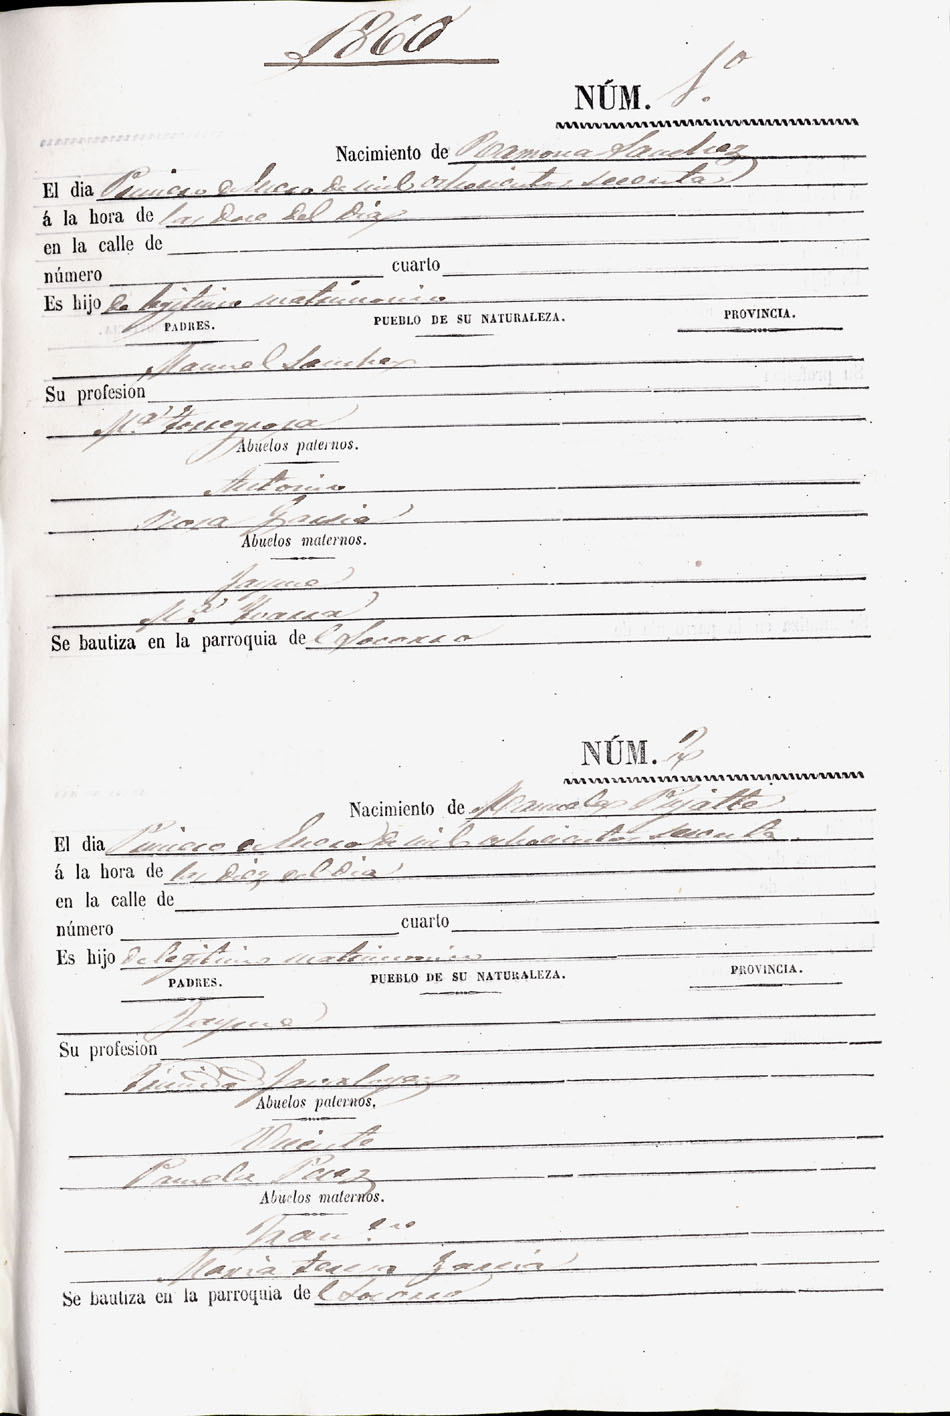 1860
NÚM. 1º
Nacimiento de Ramona Sanchez
El dia Primero de Enero de mil ochosientos secenta
á la hora de las doce del dia
en la calle de
número cuarto
Es hijo de legitimo matrimonio
PADRES. PUEBLO DE SU NATURALEZA. PROVINCIA.
Manuel Sanchez
Su profesion
Mª Torregrosa
Abuelos paternos.
Antonio
Rosa Garsia
Abuelos maternos.
Jayme
Mª
Se bautiza en la parroquia de el Socorro
NÚM. 2
Nacimiento de Manuela Pujalte
El dia Primero de Enero de mil ochosientos secenta
á la hora de las diez del dia
en la calle de
número cuarto
Es hijo de legitimo matrimonio
PADRES. PUEBLO DE SU NATURALEZA. PROVINCIA.
Jayme
Su profesion
Abuelos paternos.
Vicente
Pamela Perez
Abuelos maternos.
Franco
Maria Teresa Garsia
Se bautiza en la parroquia de el Socorro